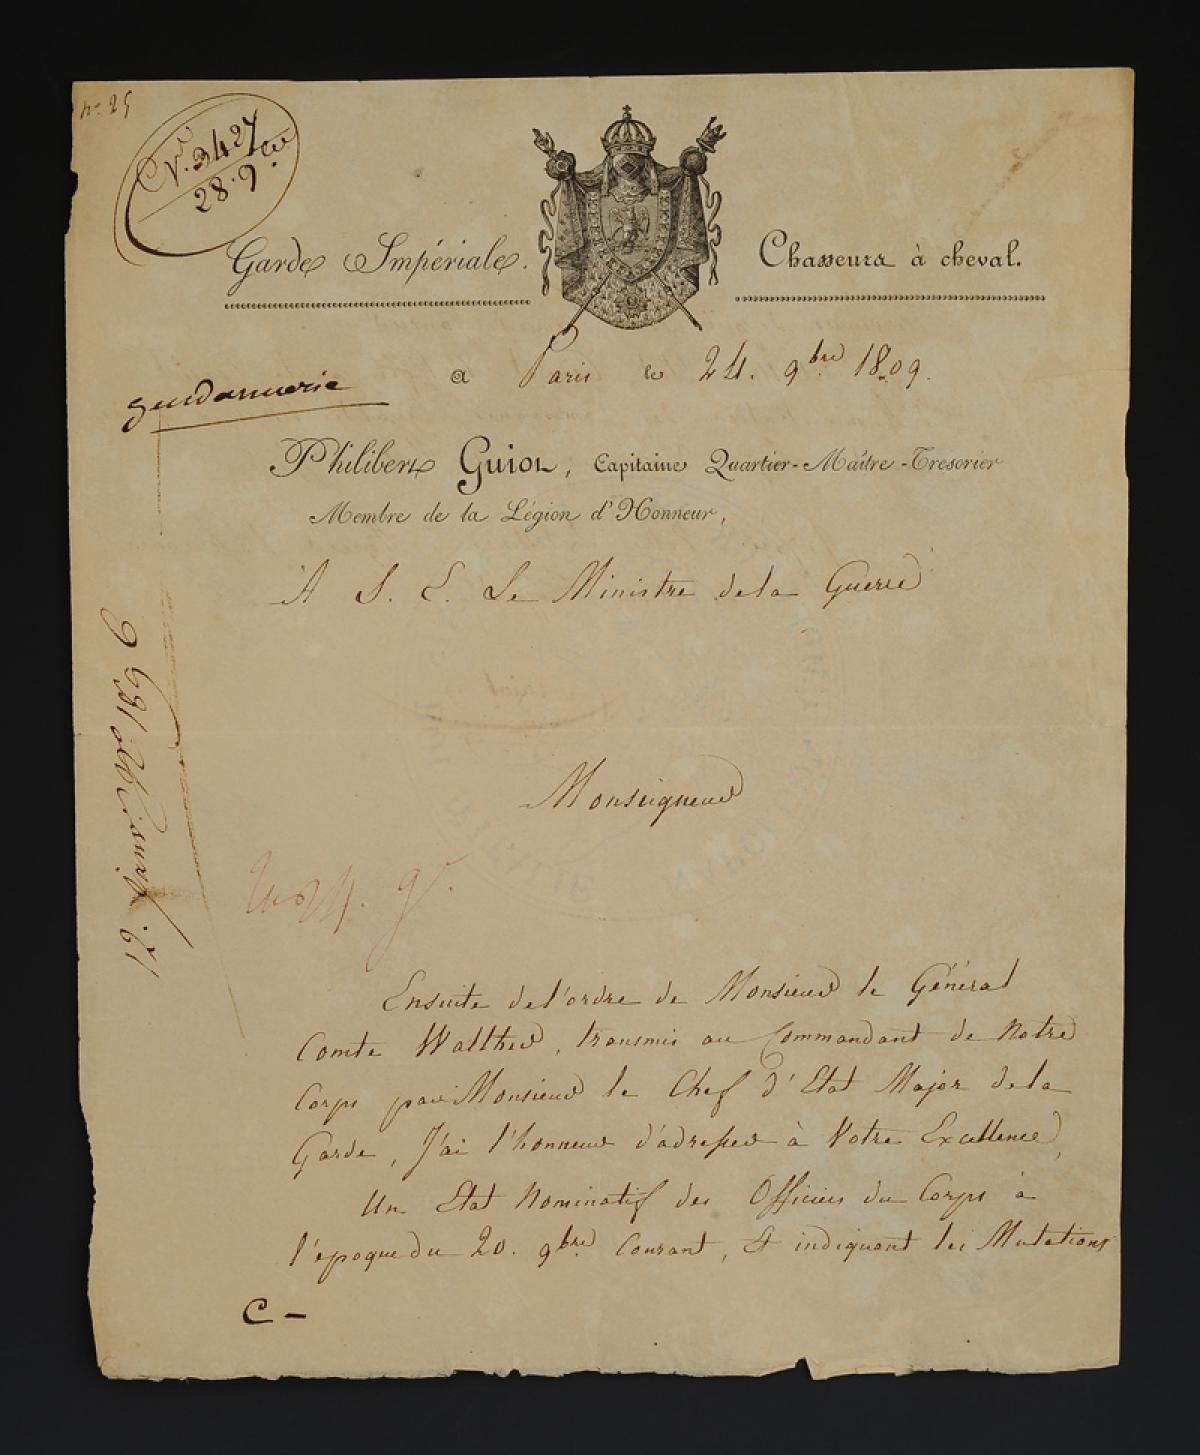 nº 25
Nº. 3427
28. 9bre
Garde Impériale. Chasseurs à cheval.
Gendarmerie
a Paris le 24. 9bre 1809.
Philibert Guiot, Capitaine Quartier-Maître-Trésorier
Membre de la Légion d'Honneur,
A S. E. Le Ministre de la Guerre
Monseigneur
Ensuite de l'ordre de Monsieur le Général
Comte Walther, transmis au Commandant de Notre
Corps par Monsieur le Chef d'Etat Major de la
Garde, J'ai l'honneur d'adresser à Votre Excellence,
Un Etat Nominatif des Officiers du Corps à
l'époque du 20. 9bre Courant, & indiquant les Mutations
C -